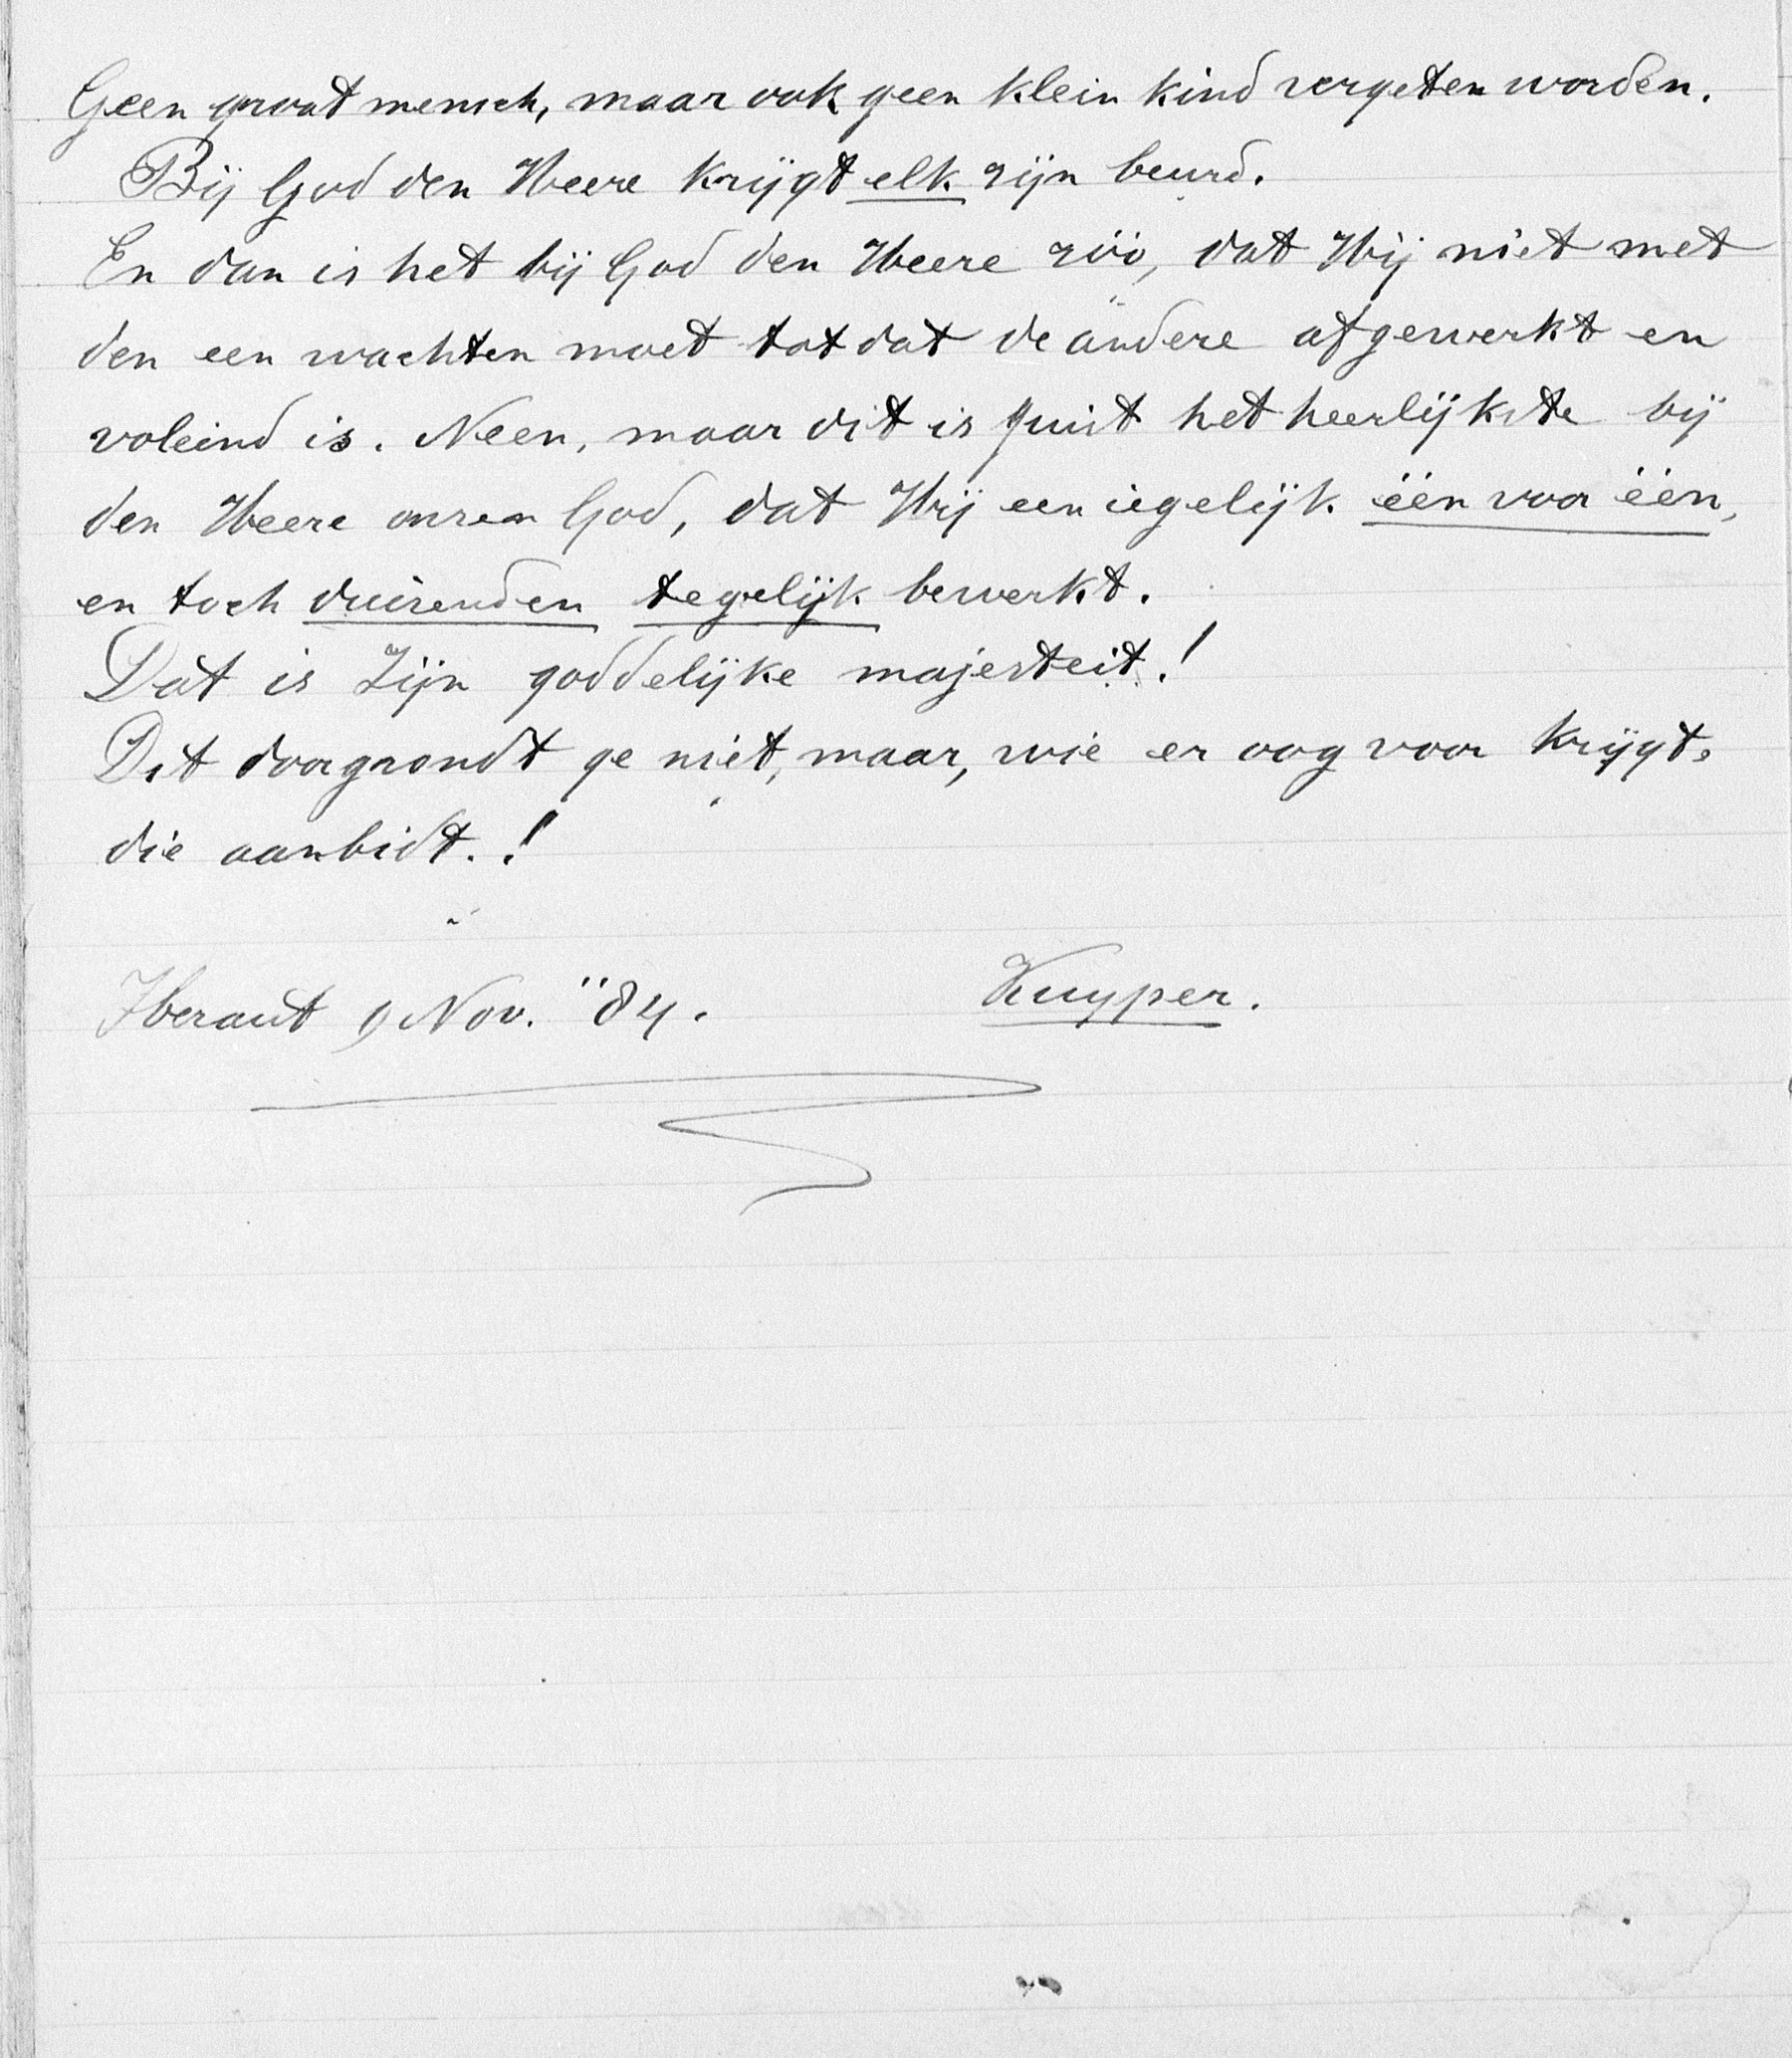 Geen groot mensch, maar ook geen klein kind vergeten worden.
Bij God den Heere krijgt elk zijn beurd.
En dan is het bij God den Heere zóó, dat Hij niet met
den een wachten moet totdat de andere afgewerkt en
voleind is. Neen, maar dit is juist het heerlijkste bij
den Heere onzen God, dat Hij een iegelijk één voor één,
en toch duizenden tegelijk bewerkt.
Dat is Zijn goddelijke majesteit!
Dit doorgrondt ge niet, maar, wie er oog voor krijgt,
die aanbidt.!
Heraut 9 Nov. "84. Kuyper.